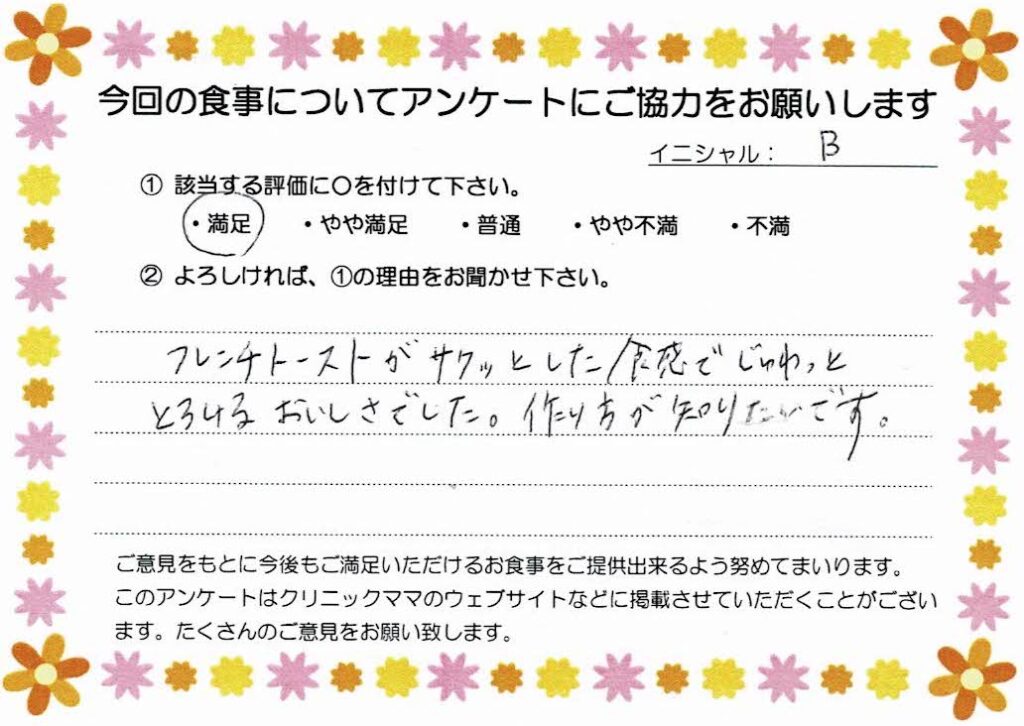 今回の食事についてアンケートにご協力をお願いします
イニシャル： B
① 該当する評価に〇を付けて下さい。
・満足 ・やや満足 ・普通 ・やや不満 ・不満
② よろしければ、①の理由をお聞かせ下さい。
フレンチトーストがサクッとした食感でじゅわっと
とろけるおいしさでした。作り方が知りたいです。
ご意見をもとに今後もご満足いただけるお食事をご提供出来るよう努めてまいります。
このアンケートはクリニックママのウェブサイトなどに掲載させていただくことがござい
ます。たくさんのご意見をお願い致します。